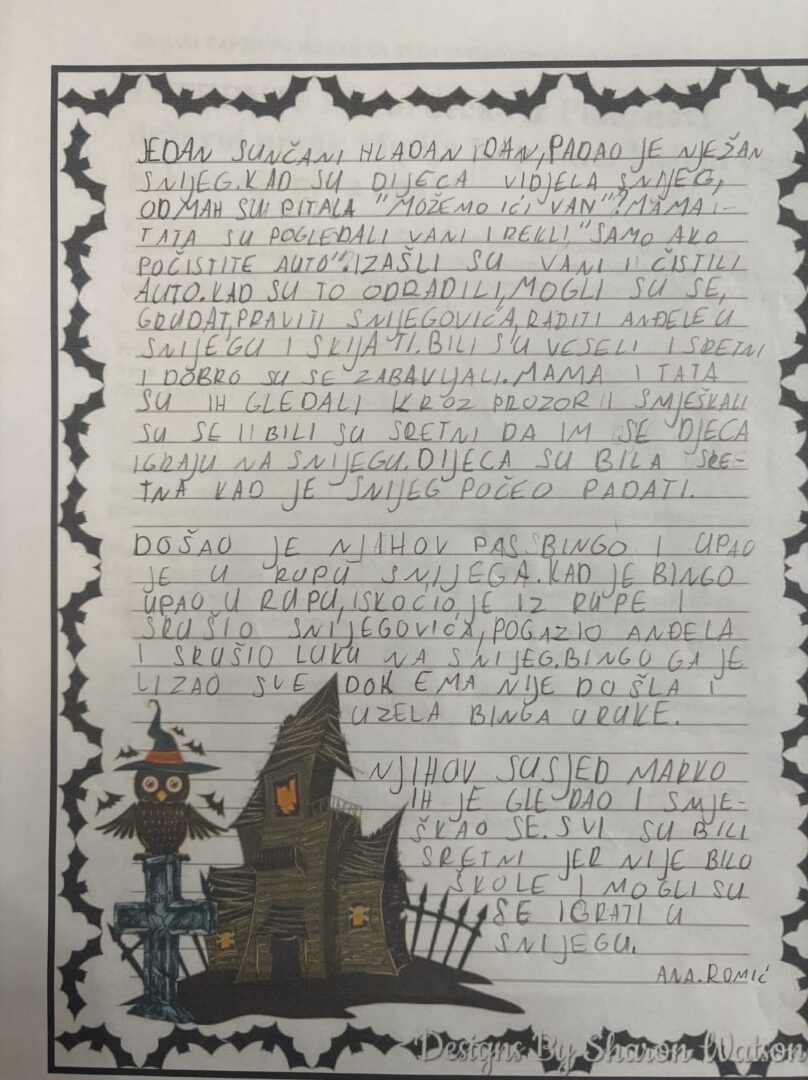 JEDAN SUNČANI HLADAN DAN, PADAO JE NJEŽAN
SNIJEG. KAD SU DIJECA VIDJELA SNIJEG,
ODMAH SU PITALA "MOŽEMO IĆI VAN"? MAMA I
TATA SU POGLEDALI VANI I REKLI "SAMO AKO
POČISTITE AUTO". IZAŠLI SU VANI I ČISTILI
AUTO. KAD SU TO ODRADILI, MOGLI SU SE,
GRUDAT, PRAVITI SNIJEGOVIĆA, RADITI ANĐELE U
SNIJEGU I SKIJATI. BILI SU VESELI I SRETNI
I DOBRO SU SE ZABAVLJALI. MAMA I TATA
SU IH GLEDALI KROZ PROZOR I SMJEŠKALI
SU SE I BILI SU SRETNI DA IM SE DJECA
IGRAJU NA SNIJEGU. DIJECA SU BILA SRE-
TNA KAD JE SNIJEG POČEO PADATI.
DOŠAO JE NJIHOV PAS BINGO I UPAO
JE U RUPU SNIJEGA. KAD JE BINGO
UPAO U RUPU, ISKOCIO JE IZ RUPE I
SRUŠIO SNIJEGOVIĆA, POGAZIO ANĐELA
I SRUŠIO LUKU NA SNIJEG. BINGO GA JE
LIZAO SVE DOK EMA NIJE DOŠLA I
UZELA BINGA U RUKE.
NJIHOV SUSJED MARKO
IH JE GLEDAO I SMJE-
ŠKAO SE. SVI SU BILI
SRETNI JER NIJE BILO
ŠKOLE I MOGLI SU
SE IGRATI U
SNIJEGU.
ANA. ROMIĆ
Designs By Sharon Watson